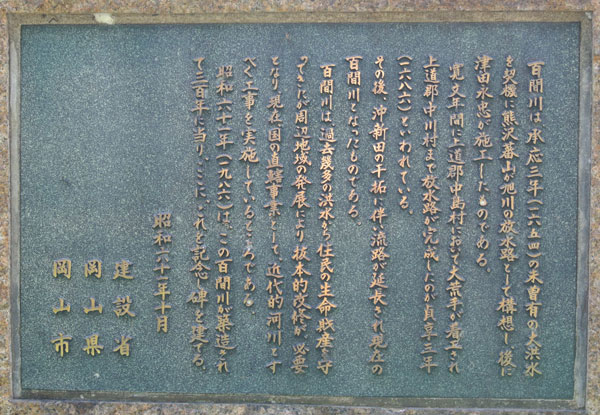 百間川は、承応三年(一六五四)の未曽有の大洪水
を契機に熊沢蕃山が旭川の放水路として構想し、後に
津田永忠が施工したものである。
寛文年間に上道郡中島村において大荒手が着工され
上道郡中川村まで放水路が完成したのが貞享三年
(一六八六)といわれている。
その後、沖新田の干拓に伴い流路が延長され現在の
百間川となったものである。
百間川は、過去幾多の洪水から住民の生命財産を守
ってきたが周辺地域の発展により抜本的改修が必要
となり、現在国の直轄事業として、近代的河川とす
べく工事を実施しているところである。
昭和六十一年(一九八六)は、この百間川が築造され
て三百年に当り、ここに、これを記念し碑を建てる。
昭和六十一年十月
建設省
岡山県
岡山市